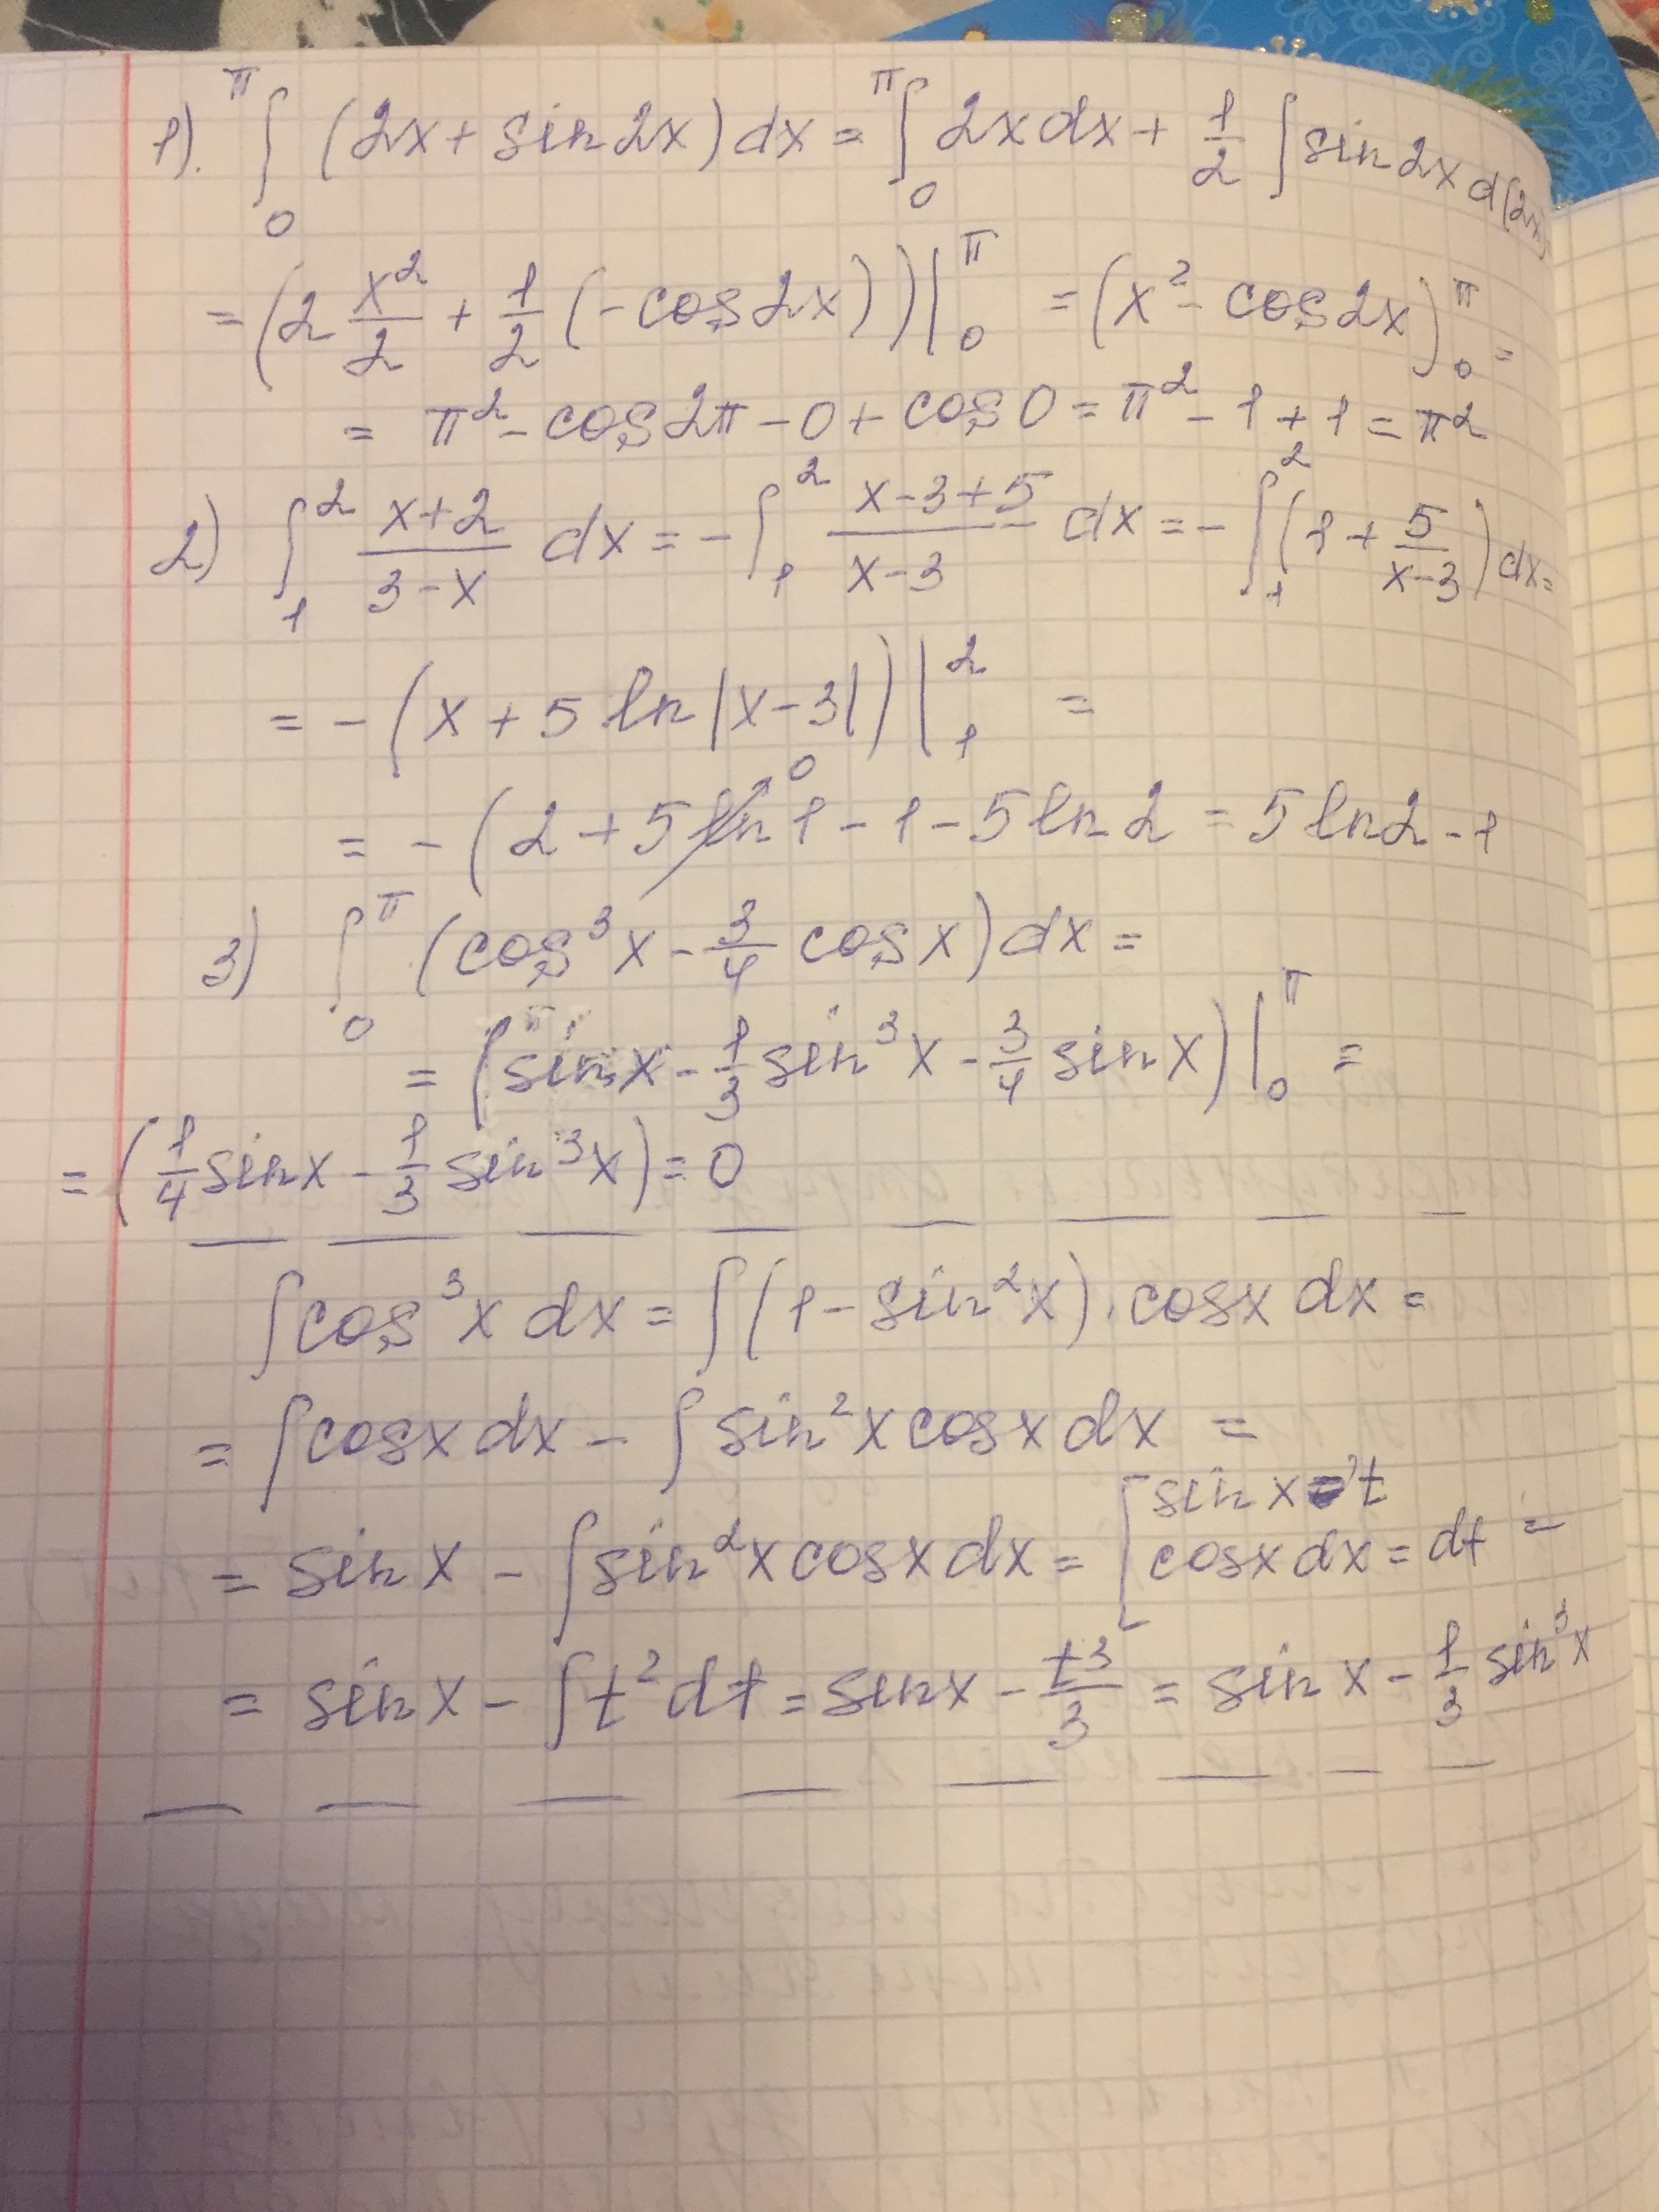 1). ∫₀^π (2x + sin2x) dx = ∫₀^π 2x dx + 1/2 ∫ sin2x d(2x)
= (2 x²/2 + 1/2 (-cos2x))|₀^π = (x² - cos2x)₀^π =
= π² - cos2π - 0 + cos0 = π² - 1 + 1 = π²
2) ∫₁² (x+2)/(3-x) dx = - ∫₁² (x-3+5)/(x-3) dx = - ∫₁² (1 + 5/(x-3)) dx =
= - (x + 5 ln|x-3|)|₁² =
= - (2 + 5 ln 1 - 1 - 5 ln 2 = 5 ln2 - 1
0
3) ∫₀^π (cos³x - 3/4 cosx) dx =
= (sinx - 1/3 sin³x - 3/4 sinx)|₀^π =
= (1/4 sinx - 1/3 sin³x) = 0
∫cos³x dx = ∫(1 - sin²x) · cosx dx =
= ∫cosx dx - ∫ sin²x cosx dx =
= sin x - ∫sin²x cosx dx = [sin x = t
cosx dx = dt =
= sinx - ∫t²dt = sinx - t³/3 = sin x - 1/3 sin³x